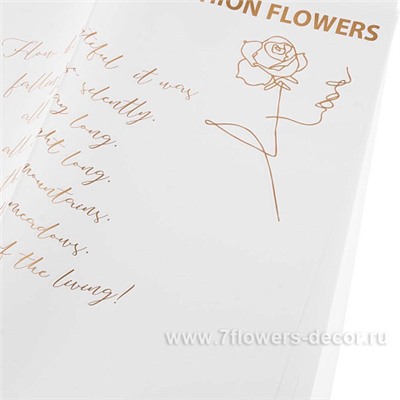 HION FLOWERS
How teful it was
fallin silently,
all ay long,
all ght long,
mountains,
meadows,
f the living!
www.7flowers-decor.ru